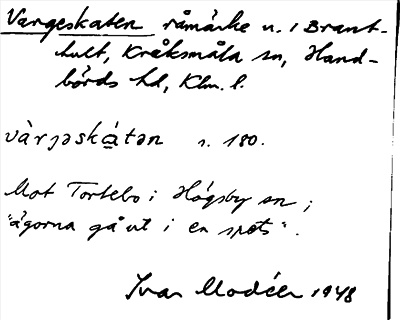 Vargeskaten råmärke u. i Brant-
hult, Kråksmåla sn, Hand-
börds hd, Klm. l.
vàrjəskátən s. 180.
Mot Tortebo i Högsby sn;
"ägorna gå ut i en spets".
Ivar Modéer 1948